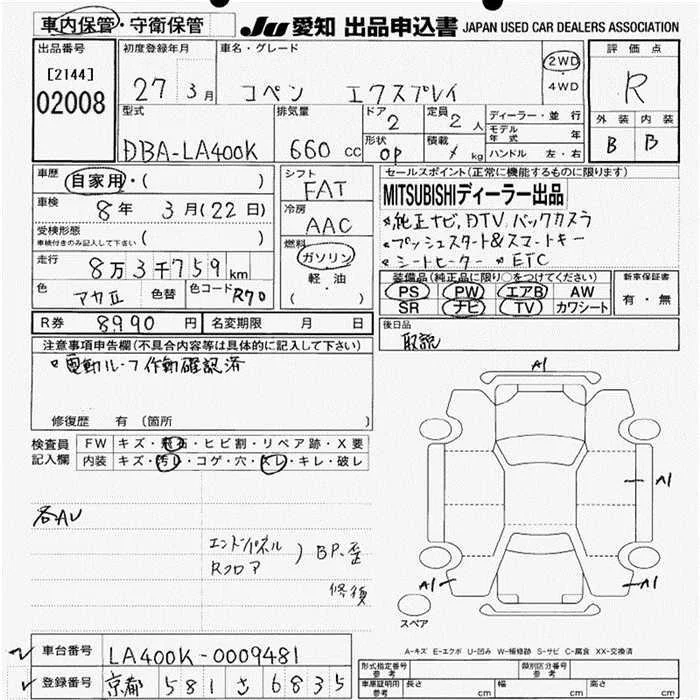 車内保管・守衛保管 JU愛知 出品申込書 JAPAN USED CAR DEALERS ASSOCIATION
出品番号 初度登録年月 車名・グレード 2WD 評価点
[2144] 27 3月 コペン エクスプレイ ・ R
02008 4WD
型式 排気量 ドア 2 定員 2 人 ディーラー・並行 外装 内装
モデル年式 年
DBA-LA400K 660 cc 形状 OP 積載 kg ハンドル 左・右 B B
車歴 自家用・( ) シフト FAT セールスポイント(正常に機能するものに限ります)
車検 8年 3月(22日) 冷房 AAC MITSUBISHIディーラー出品
受検形態 ( ) *純正ナビ,DTV,バックカメラ
車検付きのみ記入して下さい 燃料 *プッシュスタート&スマートキー
走行 8万3千759km ガソリン *シートヒーター *ETC
軽・油 装備品(純正品に限り○をつけてください) 新車保証書
色 アカII 色替 色コード R70 ( ) PS PW エアB AW 有・無
SR ナビ TV カワシート
R券 8,990円 名変期限 月 日 後日品
取説
注意事項申告欄(不具合内容等は具体的に記入して下さい)
*電動ルーフ作動確認済
修復歴 有 (箇所
検査員 FW キズ・飛石・ヒビ割・リペア跡・X要
記入欄 内装 キズ・汚レ・コゲ・穴・スレ・キレ・破レ
A1
A1
各AU
エンドパネル
Rフロア ) BP.歪
修復
A1 A1
スペア
A-キズ E-エクボ U-凹み W-補修跡 S-サビ C-腐食 XX-交換済
車台番号 LA400K-0009481
型式指定番号 参考 類別区分番号 参考
登録番号 京都 581 さ 6835
車庫証明用 参考 長さ cm 幅 cm 高さ cm